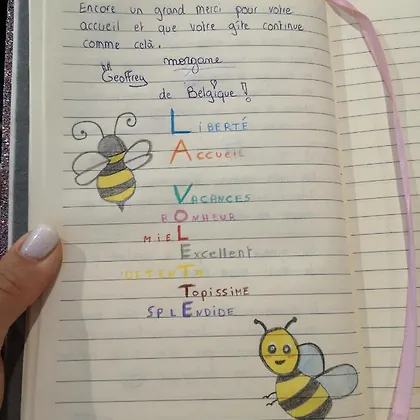 Encore un grand merci pour votre
accueil et que votre gîte continue
comme celà.
morgane
Geoffrey
de Belgique !
LIBERTÉ
ACCUEIL
VACANCES
BONHEUR
MIEL
Excellent
DETENTE
TOPISSIME
SPLENDIDE